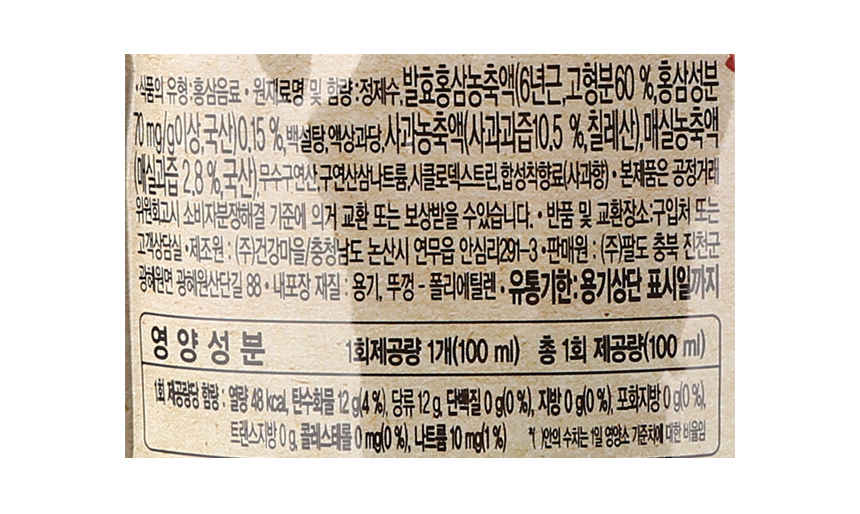 ·식품의 유형:홍삼음료 · 원재료명 및 함량:정제수,발효홍삼농축액(6년근,고형분60 %,홍삼성분
70 mg/g이상,국산)0.15 %,백설탕,액상과당,사과농축액(사과과즙10.5 %,칠레산),매실농축액
(매실과즙 2.8 %,국산),무수구연산,구연산삼나트륨,시클로덱스트린,합성착향료(사과향) · 본제품은 공정거래
위원회고시 소비자분쟁해결 기준에 의거 교환 또는 보상받을 수있습니다. · 반품 및 교환장소:구입처 또는
고객상담실 ·제조원 : (주)건강마을/충청남도 논산시 연무읍 안심리291-3 ·판매원 : (주)팔도 충북 진천군
광혜원면 광혜원산단길 88 · 내포장 재질 : 용기, 뚜껑 - 폴리에틸렌 · 유통기한: 용기상단 표시일까지
영 양 성 분 1회제공량 1개(100 ml) 총 1회 제공량(100 ml)
1회 제공량당 함량 : 열량 48 kcal, 탄수화물 12 g(4 %), 당류 12 g, 단백질 0 g(0 %), 지방 0 g(0 %), 포화지방 0 g(0 %),
트랜스지방 0 g, 콜레스테롤 0 mg(0 %), 나트륨 10 mg(1 %) *( )안의 수치는 1일 영양소 기준치에 대한 비율임